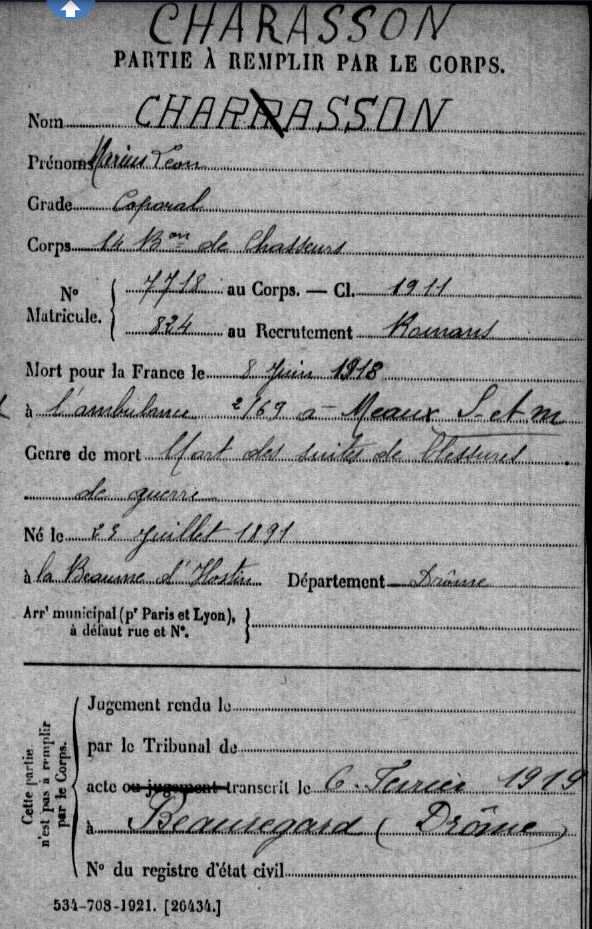 CHARASSON
PARTIE À REMPLIR PAR LE CORPS.
Nom CHARRASSON
Prénoms Marius Léon
Grade Caporal
Corps 14 Bon de Chasseurs
N° Matricule. 7718 au Corps. — Cl. 1911
824 au Recrutement Romans
Mort pour la France le 8 Juin 1918
à l'ambulance 2/69 a - Meaux S-et-M
Genre de mort Mort des suites de blessures
de guerre
Né le Juillet 1891
à la Beaume d'Hostun Département Drôme
Arrt municipal (pr Paris et Lyon),
à défaut rue et N°.
Cette partie n'est pas à remplir par le Corps.
Jugement rendu le
par le Tribunal de
acte ou jugement transcrit le 6. Fevrier 1919
à Beauregard (Drôme)
N° du registre d'état civil
534-708-1921. [26434.]